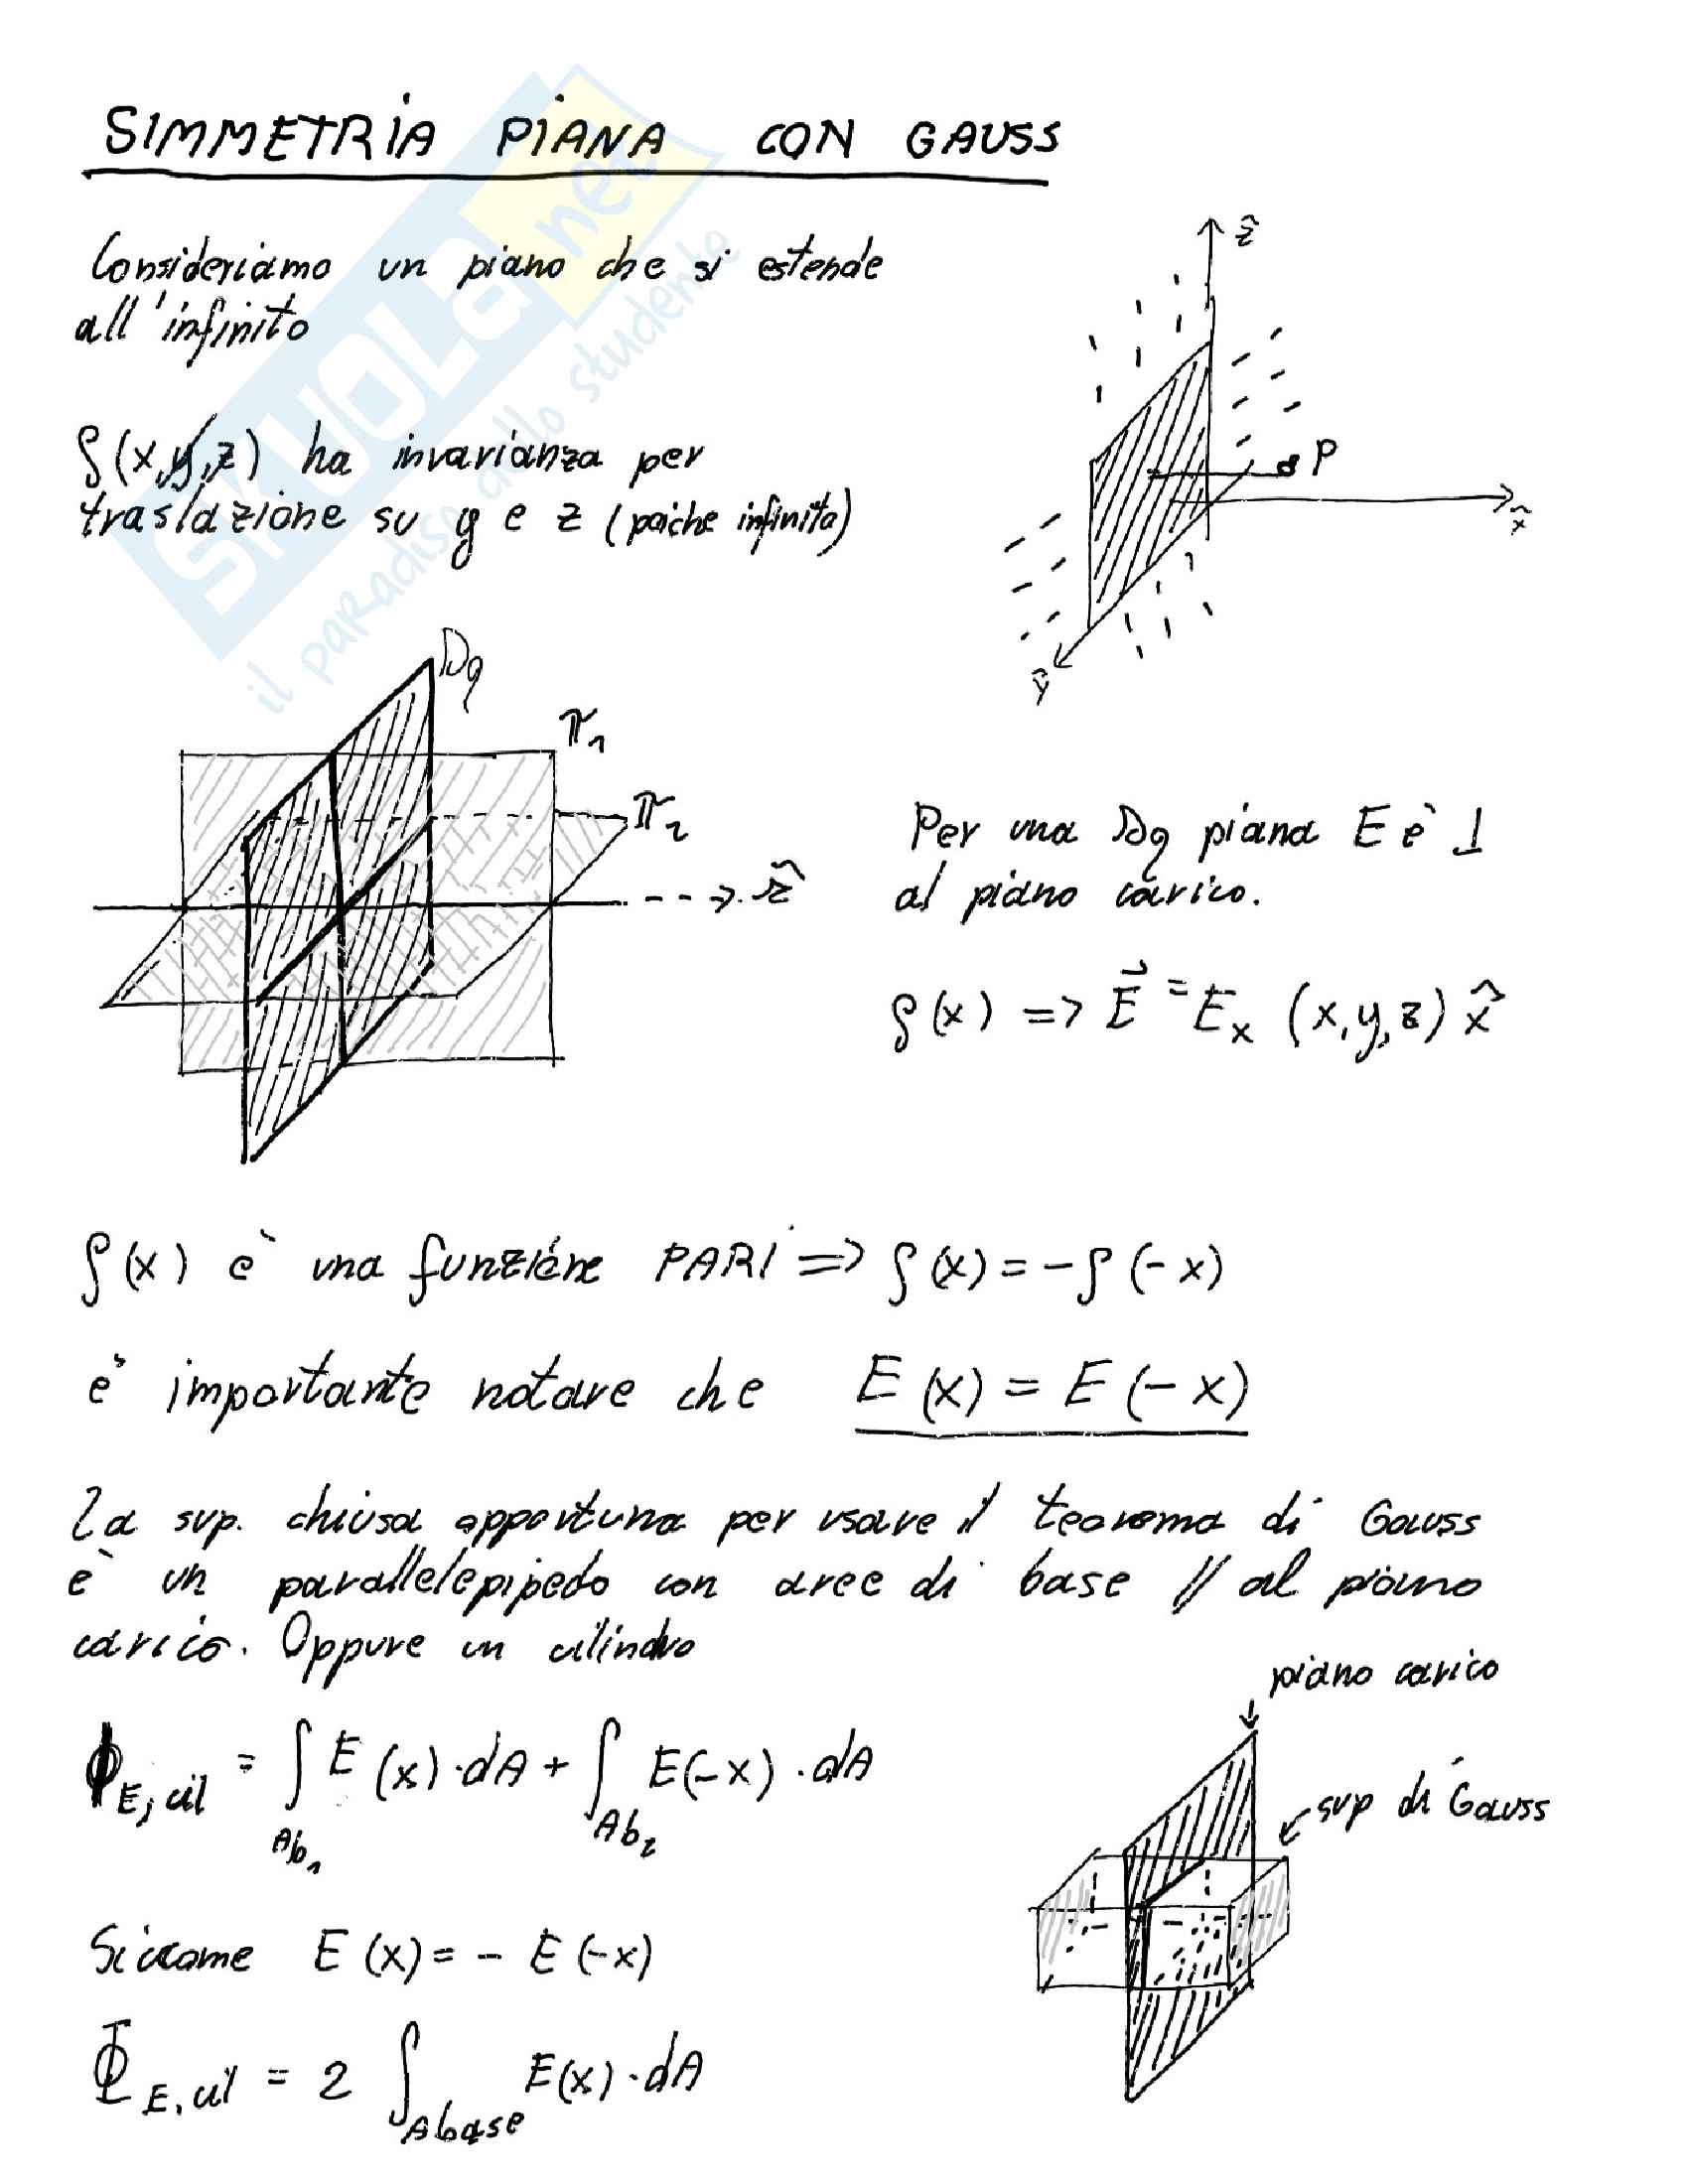 SIMMETRIA PIANA CON GAUSS
Consideriamo un piano che si estende
all'infinito
ρ(x,y,z) ha invarianza per
traslazione su y e z (poiche infinita)
ẑ
P
x̂
ŷ
Dq
π₁
π₂
Per una Dq piana E è ⊥
al piano carico.
ρ(x) => E⃗ = Eₓ (x,y,z) x̂
ρ(x) è una funzione PARI => ρ(x) = -ρ(-x)
è importante notare che E(x) = E(-x)
La sup. chiusa opportuna per usare il teorema di Gauss
è un parallelepipedo con aree di base // al piano
carico. Oppure un cilindro
piano carico
sup di Gauss
Φ E, cil = ∫ Ab₁ E(x)·dA + ∫ Ab₂ E(-x)·dA
Siccome E(x) = - E(-x)
Φ E, cil = 2 ∫ Abase E(x)·dA
SKUOLa.net
il paradiso dello studente